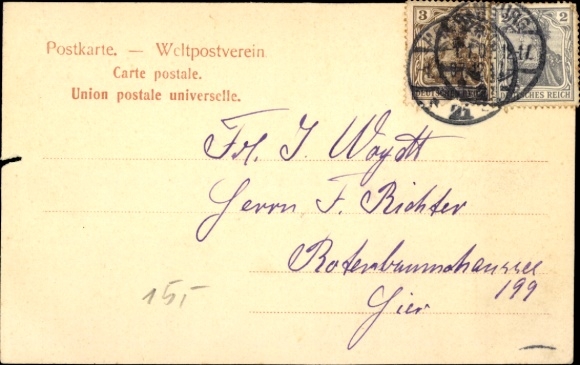 Postkarte. — Weltpostverein.
Carte postale.
Union postale universelle.
3
2
DEUTSCHES REICH
Frl. I. Woydt
Herrn F. Richter
Rotenbaumchaussee
199
Hier
15,-